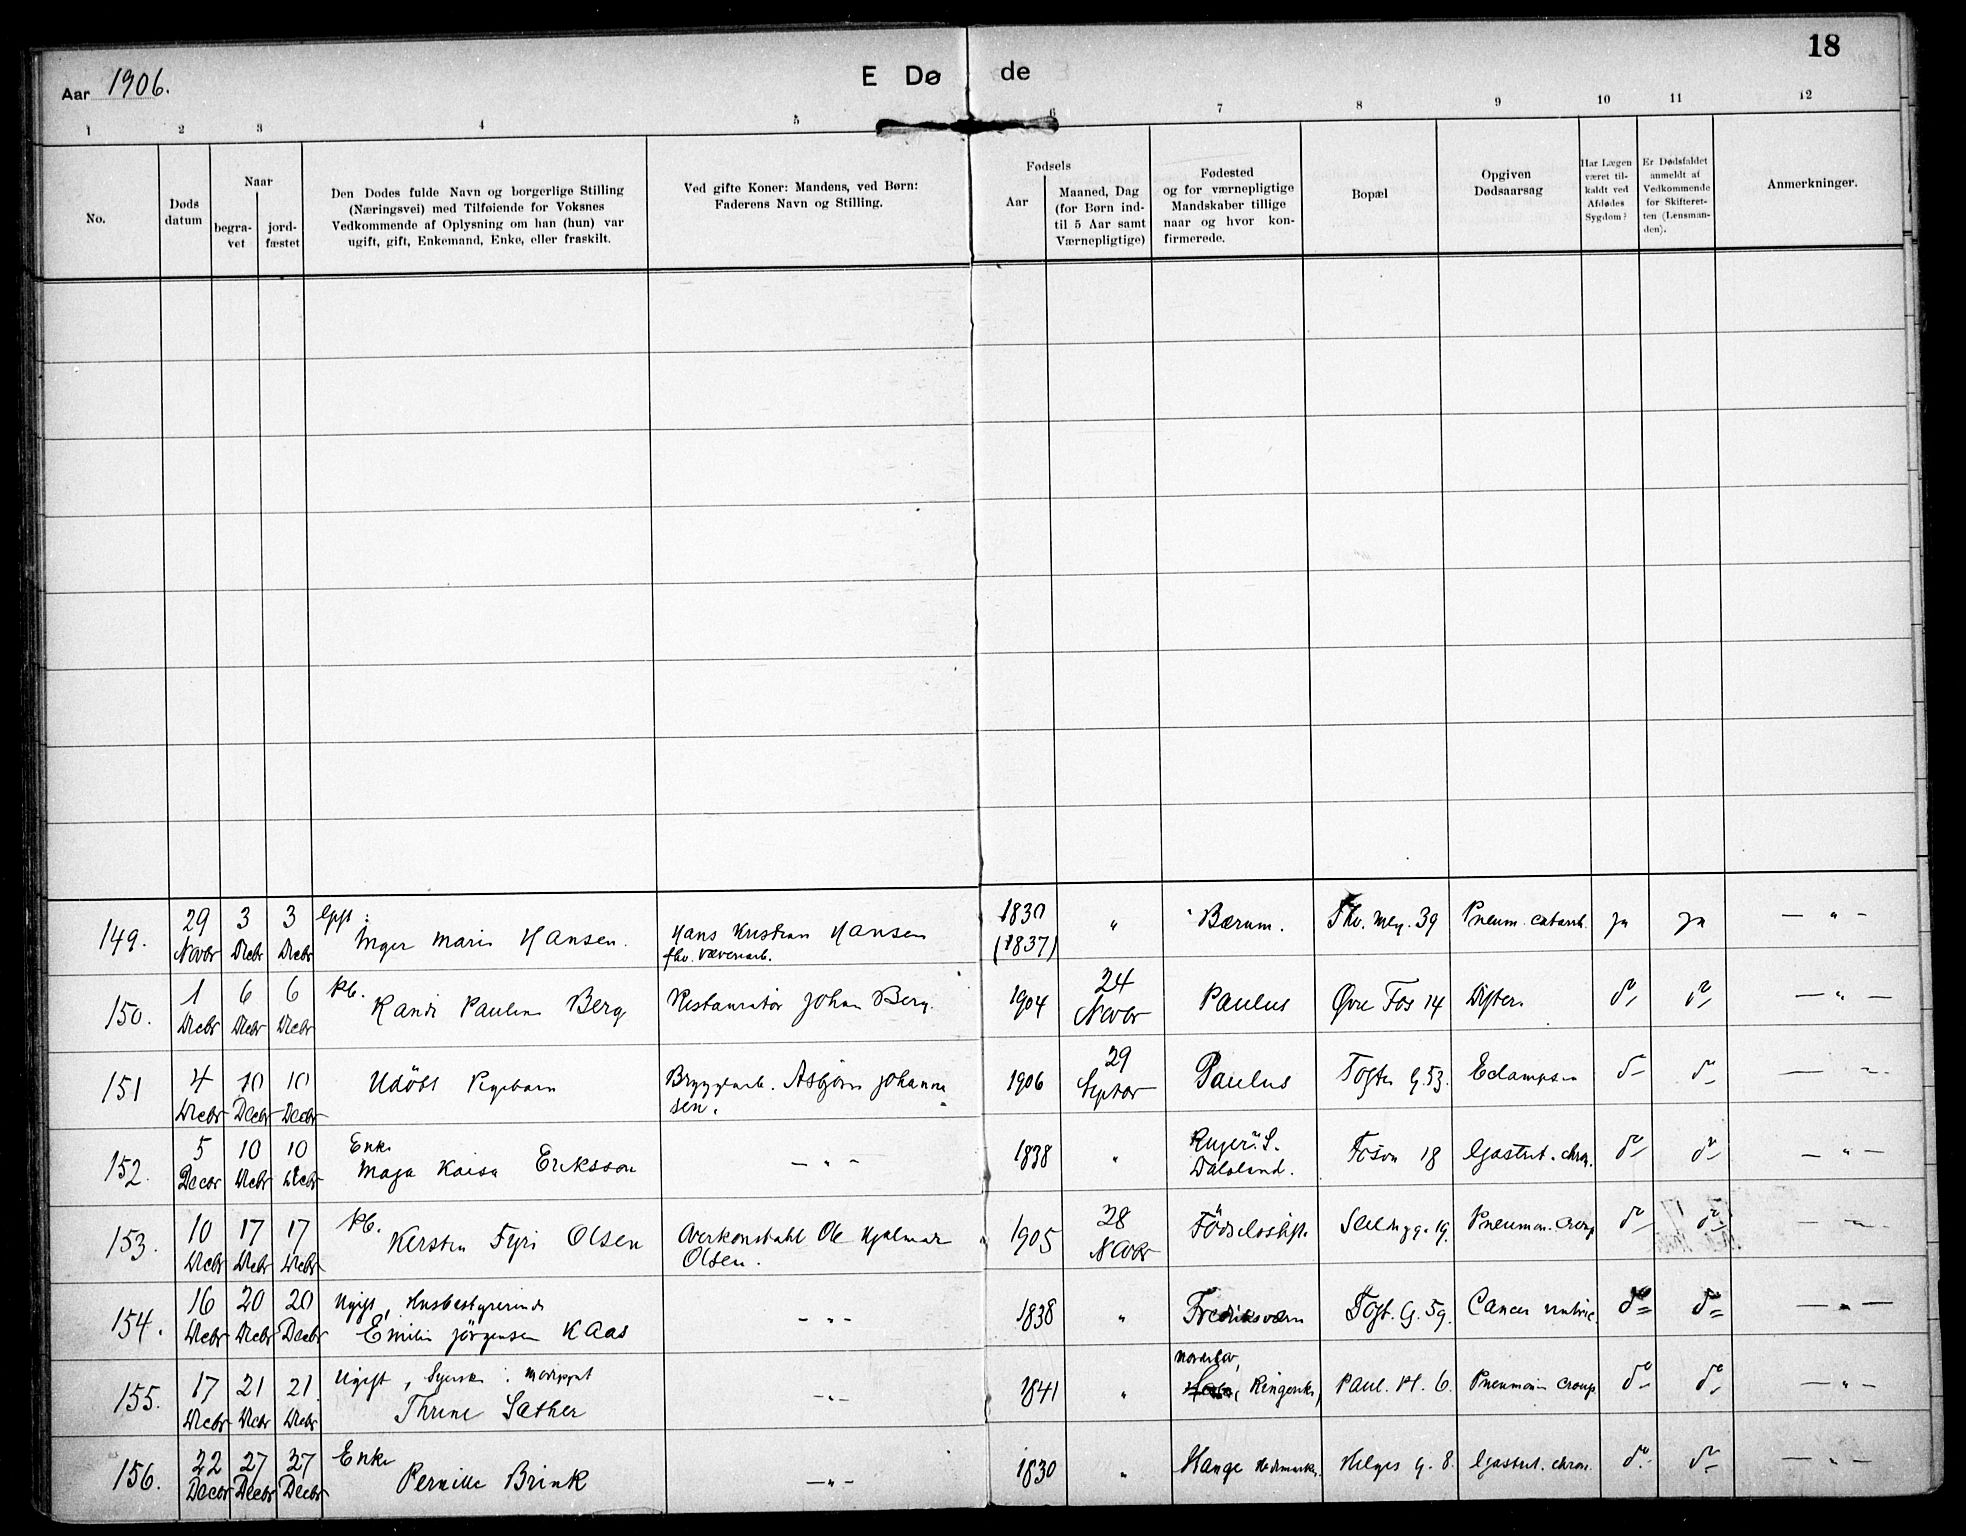 18
Aar 1906.
E Dø de
1 2 3 4 5 6 7 8 9 10 11 12
No.
Døds datum
Naar
begra-vet
jord-fæstet
Den Dødes fulde Navn og borgerlige Stilling
(Næringsvei) med Tilføiende for Voksnes
Vedkommende af Oplysning om han (hun) var
ugift, gift, Enkemand, Enke, eller fraskilt.
Ved gifte Koner: Mandens, ved Børn:
Faderens Navn og Stilling.
Fødsels
Aar
Maaned, Dag
(for Børn ind-
til 5 Aar samt
Værnepligtige)
Fødested
og for værnepligtige
Mandskaber tillige
naar og hvor kon-
firmerede.
Bopæl
Opgiven
Dødsaarsag
Har Lægen
været til-
kaldt ved
Afdødes
Sygdom?
Er Dødsfaldet
anmeldt af
Vedkommende
for Skifteret-
ten (Lensman-
den).
Anmerkninger.
149. 29 Novbr 3 Decbr 3 Decbr Gift: Inger Marie Hansen. Hans Kristian Hansen fhv. Væveriarb. 1830 (1837) " Bærum. Thv. Mey. 39 Pneum. catarrh. ja ja — " —
150. 1 Decbr 6 Decbr 6 Decbr Pb. Randi Pauline Berg Restauratør Johan Berg. 1904 24 Novbr Paulus Øvre Fos 14 Difteri do do — " —
151 4 Decbr 10 Decbr 10 Decbr Udöbt Pigebarn Bryggearb. Asbjørn Johannesen. 1906 29 Septbr Paulus Fogter G. 53. Eclampsia do do — " —
152. 5 Decbr 10 Decbr 10 Decbr Enke Maja Kaisa Eriksson — " — 1838 " Dalsland. Fosvn 18 Gastrit. chron. do do — " —
153. 10 Decbr 17 Decbr 17 Decbr Pb. Kersten Fyri Olsen Overkonstabl Ole Hjalmar Olsen. 1905 28 Novbr Fødselsstift. Seilduggs. 19. Pneumon. Croup do do — " —
154. 16 Decbr 20 Decbr 20 Decbr Ugift, Husbestyrerinde Emilie Jørgensen Kaas — " — 1838 " Fredriksværn Fogt. G. 59. Cancer ventric. do do — " —
155. 17 Decbr 21 Decbr 21 Decbr Ugift, Syerske Thrine Sæther — " — 1841 " Norderhov, Ringerike, Paul. Pl. 6. Pneumonia Croup do do — " —
156. 22 Decbr 27 Decbr 27 Decbr Enke Pernille Brink — " — 1830 " Stange Hedemarken. Helges G. 8. Gastrit. chron. do do — " —